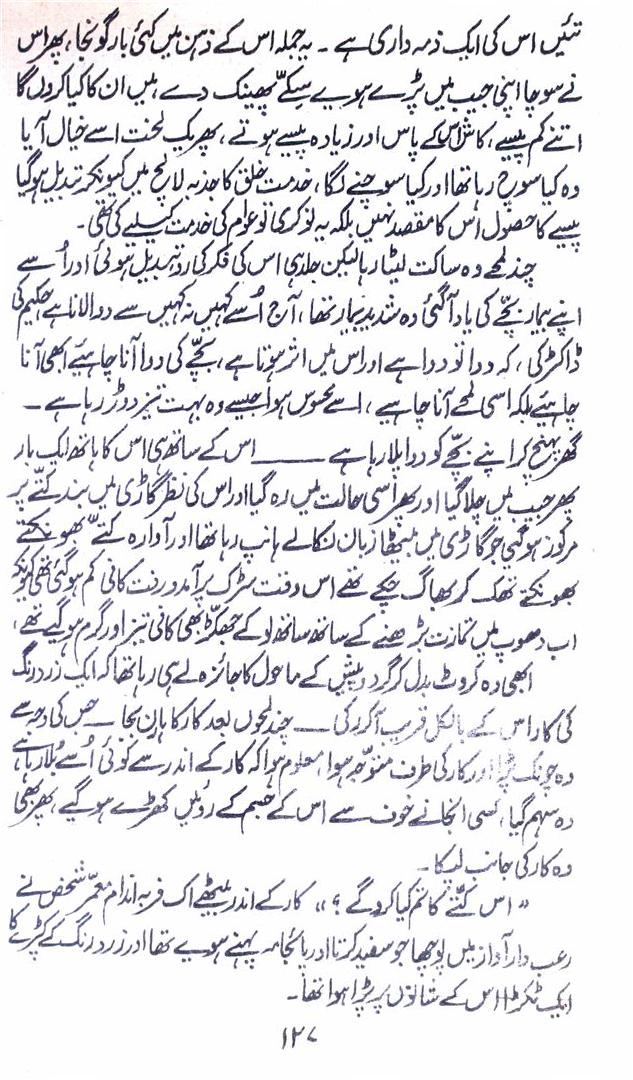 تئیں اس کی ایک ذمہ داری ہے ۔ یہ جملہ اس کے ذہن میں کئی بار گونجا، پھر اس
نے سوچا اپنی جیب میں پڑے ہوئے سکے پھینک دے، میں ان کا کیا کروں گا
اتنے کم پیسے، کاش اس کے پاس اور زیادہ پیسے ہوتے ، پھر یک لخت اسے خیال آیا
وہ کیا سوچ رہا تھا اور کیا سوچنے لگا، خدمت خلق کا جذبہ لالچ میں کیونکر تبدیل ہوگیا
پیسے کا حصول اس کا مقصد نہیں بلکہ یہ نوکری تو عوام کی خدمت کیلئے کی تھی۔
چند لمحے وہ ساکت لیٹا رہا لیکن جلد ہی اس کی فکر کی رو تبدیل ہوئی اور اُسے
اپنے بیمار بچّے کی یاد آگئی وہ شدید بیمار تھا، آج اُسے کہیں نہ کہیں سے دوا لانا ہے حکیم کی
ڈاکٹر کی ، کہ دوا تو دوا ہے اور اس میں اثر ہوتا ہے، بچّے کی دوا آنا چاہیئے ابھی آنا
چاہیئے بلکہ اسی لمحے آنا چاہیے ، اسے محسوس ہوا جیسے وہ بہت تیز دوڑ رہا ہے ۔
گھر پہنچ کر اپنے بچّے کو دوا پلا رہا ہے ــــــ اس کے ساتھ ہی اس کا ہاتھ ایک بار
پھر جیب میں چلا گیا اور پھر اسی حالت میں رہ گیا اور اس کی نظر گاڑی میں بند کتّے پر
مرکوز ہوگئی جو گاڑی میں بیٹھا زبان نکالے ہانپ رہا تھا اور آوارہ کتّے بھونکتے
بھونکتے تھک کر بھاگ چکے تھے اس وقت سڑک پر آمد و رفت کافی کم ہوگئی تھی کیونکہ
اب دھوپ میں تمازت بڑھنے کے ساتھ ساتھ لو کے جھکڑ بھی کافی تیز اور گرم ہوگئے تھے،
ابھی وہ کروٹ بدل کر گرد و پیش کے ماحول کا جائزہ لے ہی رہا تھا کہ ایک زرد رنگ
کی کار اس کے بالکل قریب آکر رکی ــ چند لمحوں بعد کار کا ہارن بجا ــ جس کی وجہ سے
وہ چونک پڑا اور کار کی طرف متوجّہ ہوا، معلوم ہوا کہ کار کے اندر سے کوئی اُسے بُلا رہا ہے
وہ سہم گیا، کسی انجانے خوف سے اس کے جسم کے روئیں کھڑے ہوگیے، پھر بھی
وہ کار کی جانب لپکا۔
"اس کتّے کا تم کیا کروگے ؟" کار کے اندر بیٹھے اک فربہ اندام معمّر شخص نے
رعب دار آواز میں پوچھا جو سفید کرتا اور پائجامہ پہنے ہوئے تھا اور زرد رنگ کے کپڑے کا
ایک ٹکڑا اس کے شانوں پر پڑا ہوا تھا۔
۱۲۷